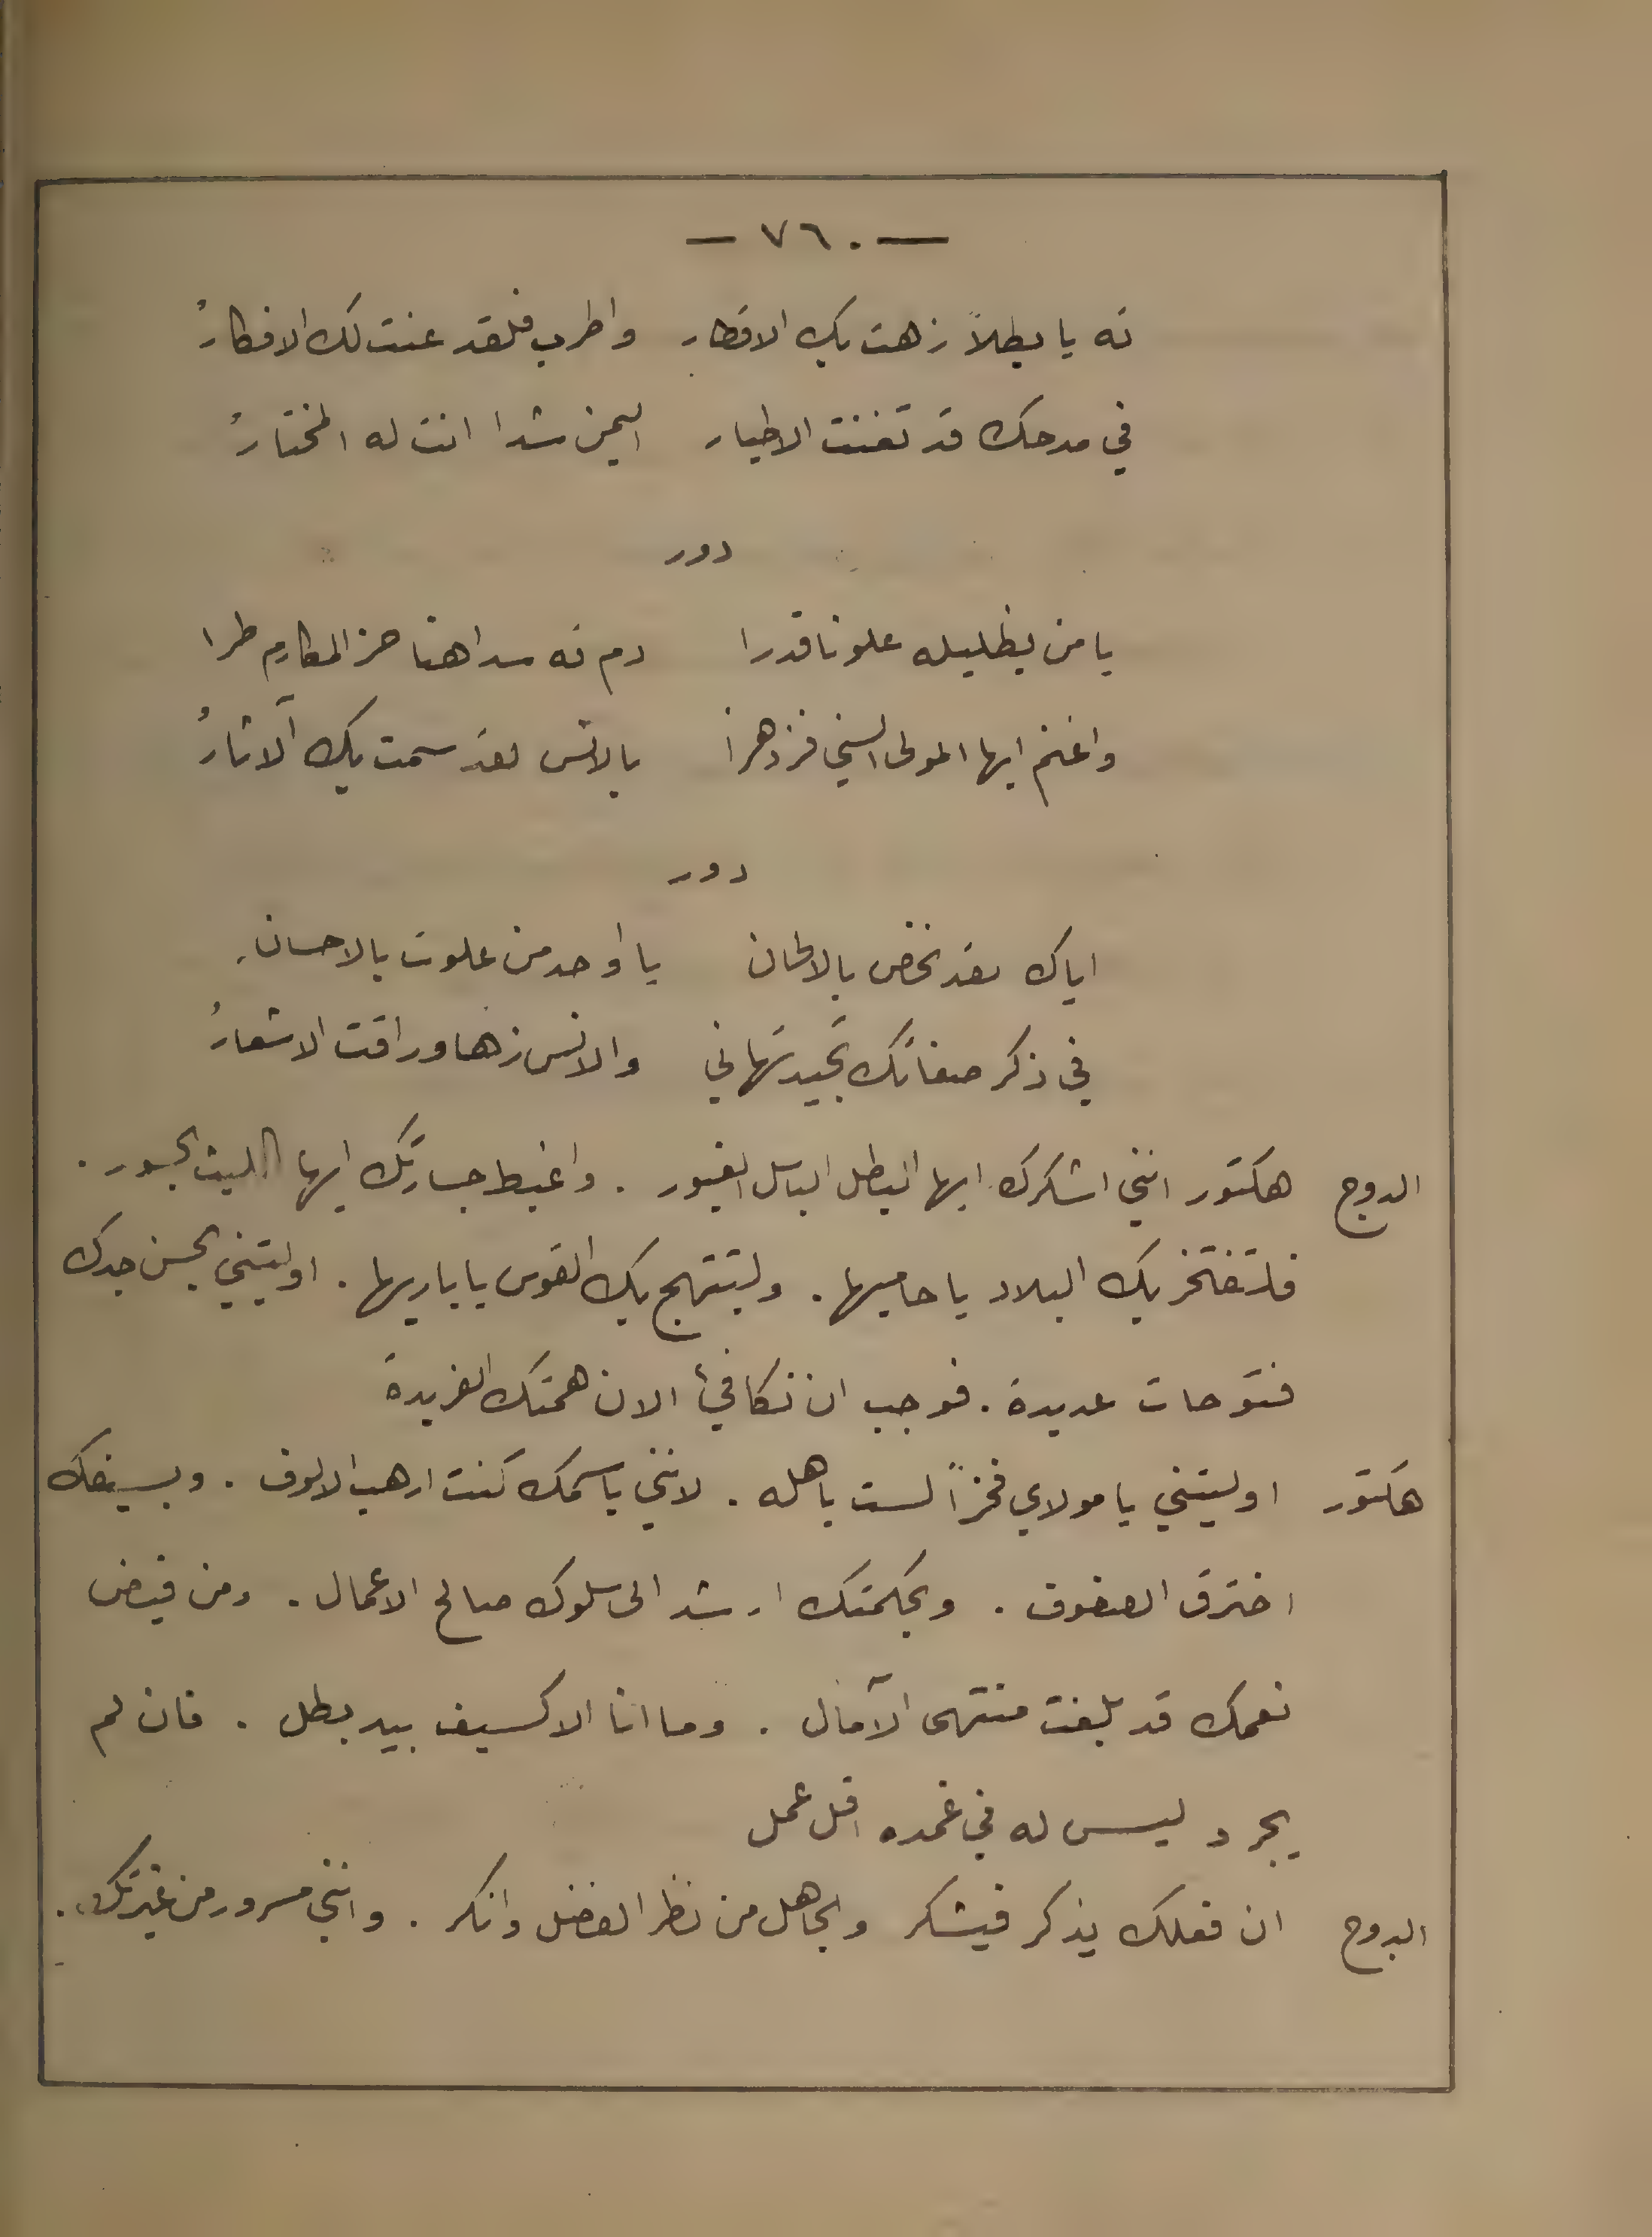 — ٧٦٠ —
ته يا بطلاً زهت بك الاقطار واطرب فلقد عنت لك الافكارُ
في مدحك قد تغنت الاطيار اليمن شدا انت له المختارُ
دور
يا من بظليله علونا قدرا دم ته سدا هنا حز المكارم طرا
واغنم ايها المولى السني فزدهرا بالانس لقد سمت بك الاثارُ
دور
اياك لقد نخص بالالحان يا اوحد من علوت بالاحسانِ
في ذكر صفاتك تجيد تهاني والانس زها وراقت الاشعارُ
الدوج هكتور انني اشكرك ايها البطل الباسل الغيور . واغبط جسارتك ايها الليث الجسور .
فلتفتخر بك البلاد يا حاميها . ولتبتهج بك القوس يا باريها . اوليتني بحسن جدك
فتوحات عديدة . فوجب ان نكافئ الان همتك الفريدة
هكتور اوليتني يا مولاي فخراً لست باهله . لانني باسمك كنت ارهب الالوف . وبسيفك
اخترق الصفوف . وبحكمتك ارشد الى سلوك صالح الاعمال . ومن فيض
نعمك قد بلغت منتهى الآمال . وما انا الا كسيف بيد بطل . فان لم
يجرد ليس له في غمده اقل عمل
الدوج ان فعلك يذكر فيشكر والجاهل من نظر الفضل وانكر . وانني مسرور من غيرتك .